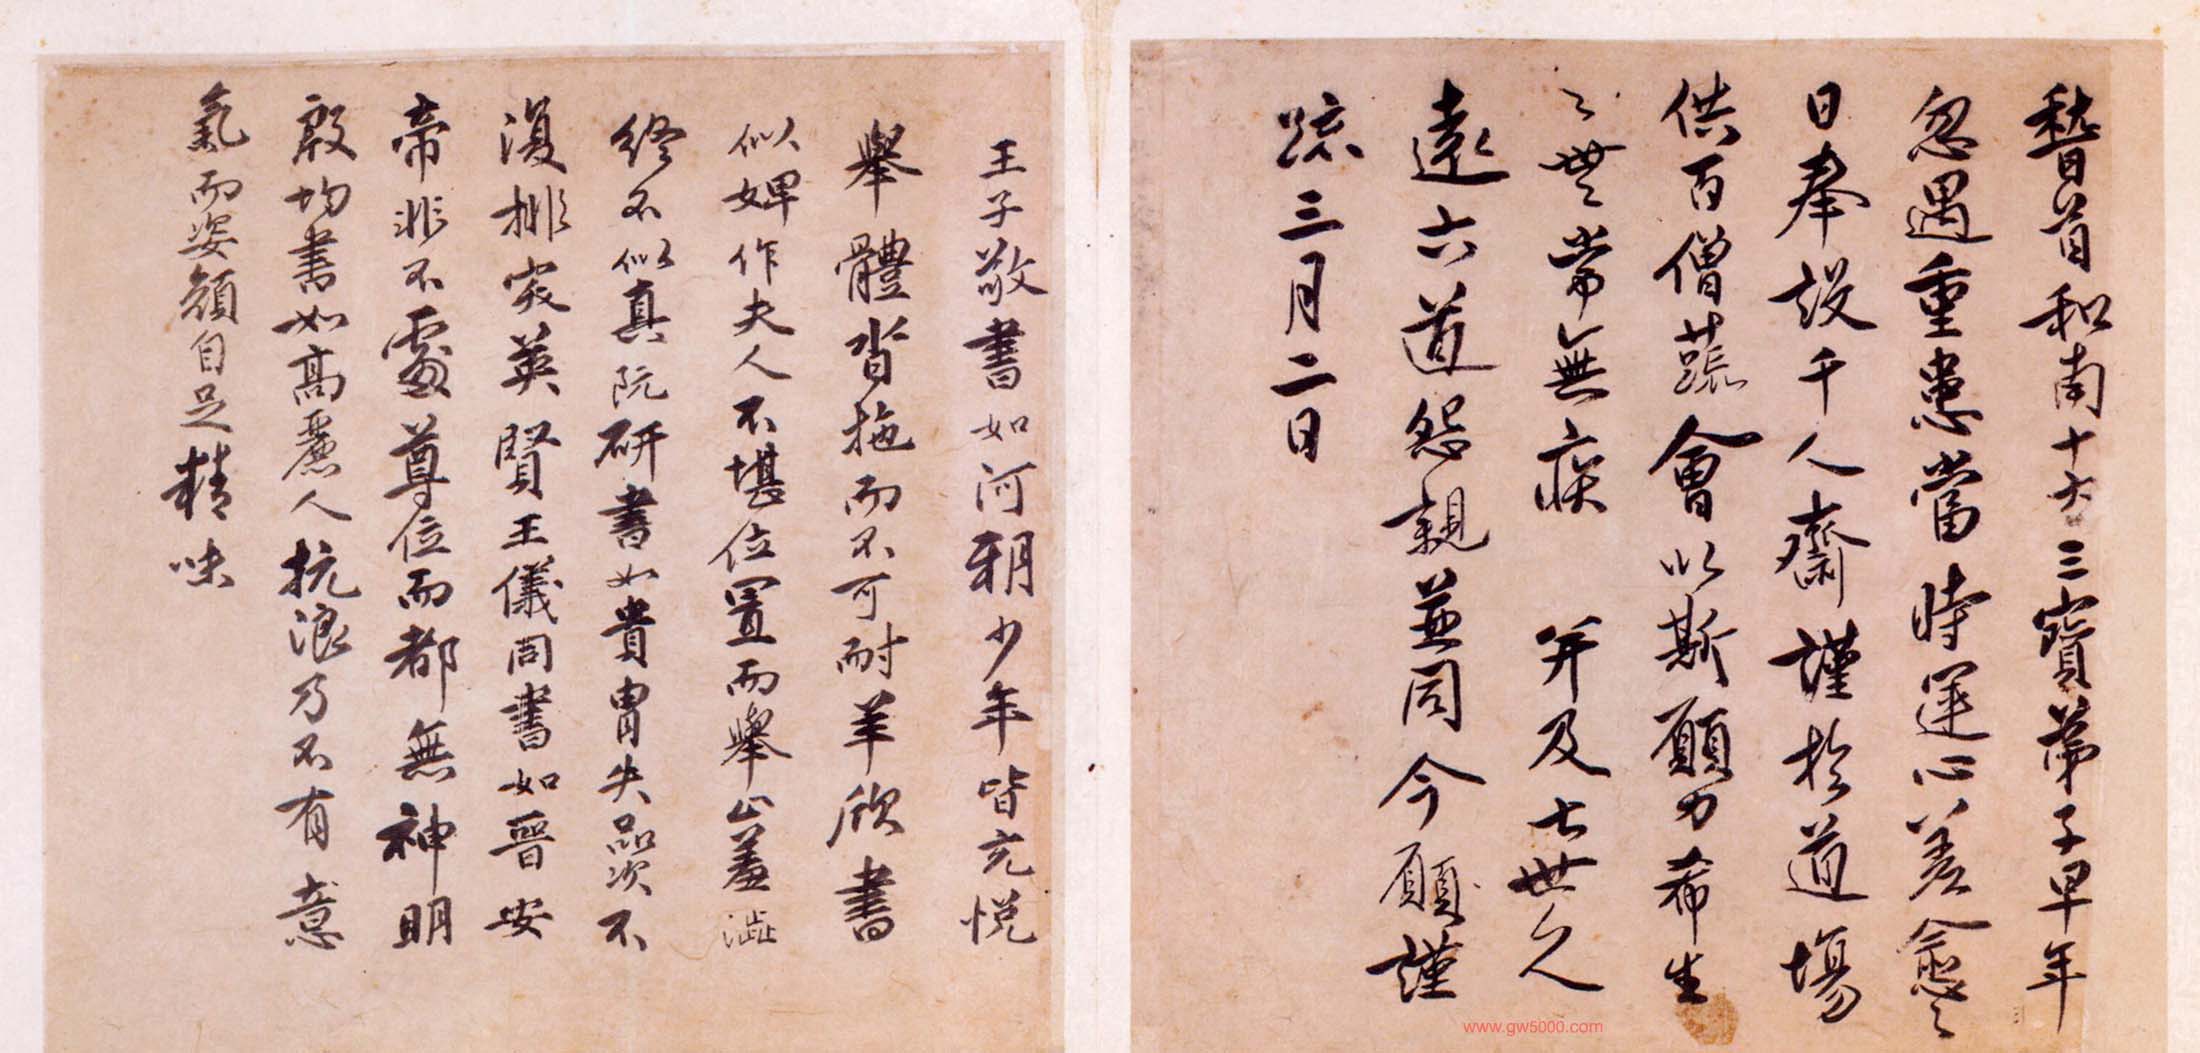 稽首和南十方三寶弟子早年
忽遇重患當時運心差愈之
日奉設千人齋謹於道場
供百僧蔬會以斯願力希生
生世世常無疾 并及七世久
遠六道怨親並同今願謹
疏三月二日
王子敬書如河朔少年皆充悅
舉體沓拖而不可耐羊欣書
似婢作夫人不堪位置而舉止羞澁
終不似真阮研書如貴冑失品次不
復排突英賢王儀同書如晉安
帝非不處尊位而都無神明
殷均書如高麗人抗浪乃不有意
氣而姿顏自足精味
www.gw5000.com